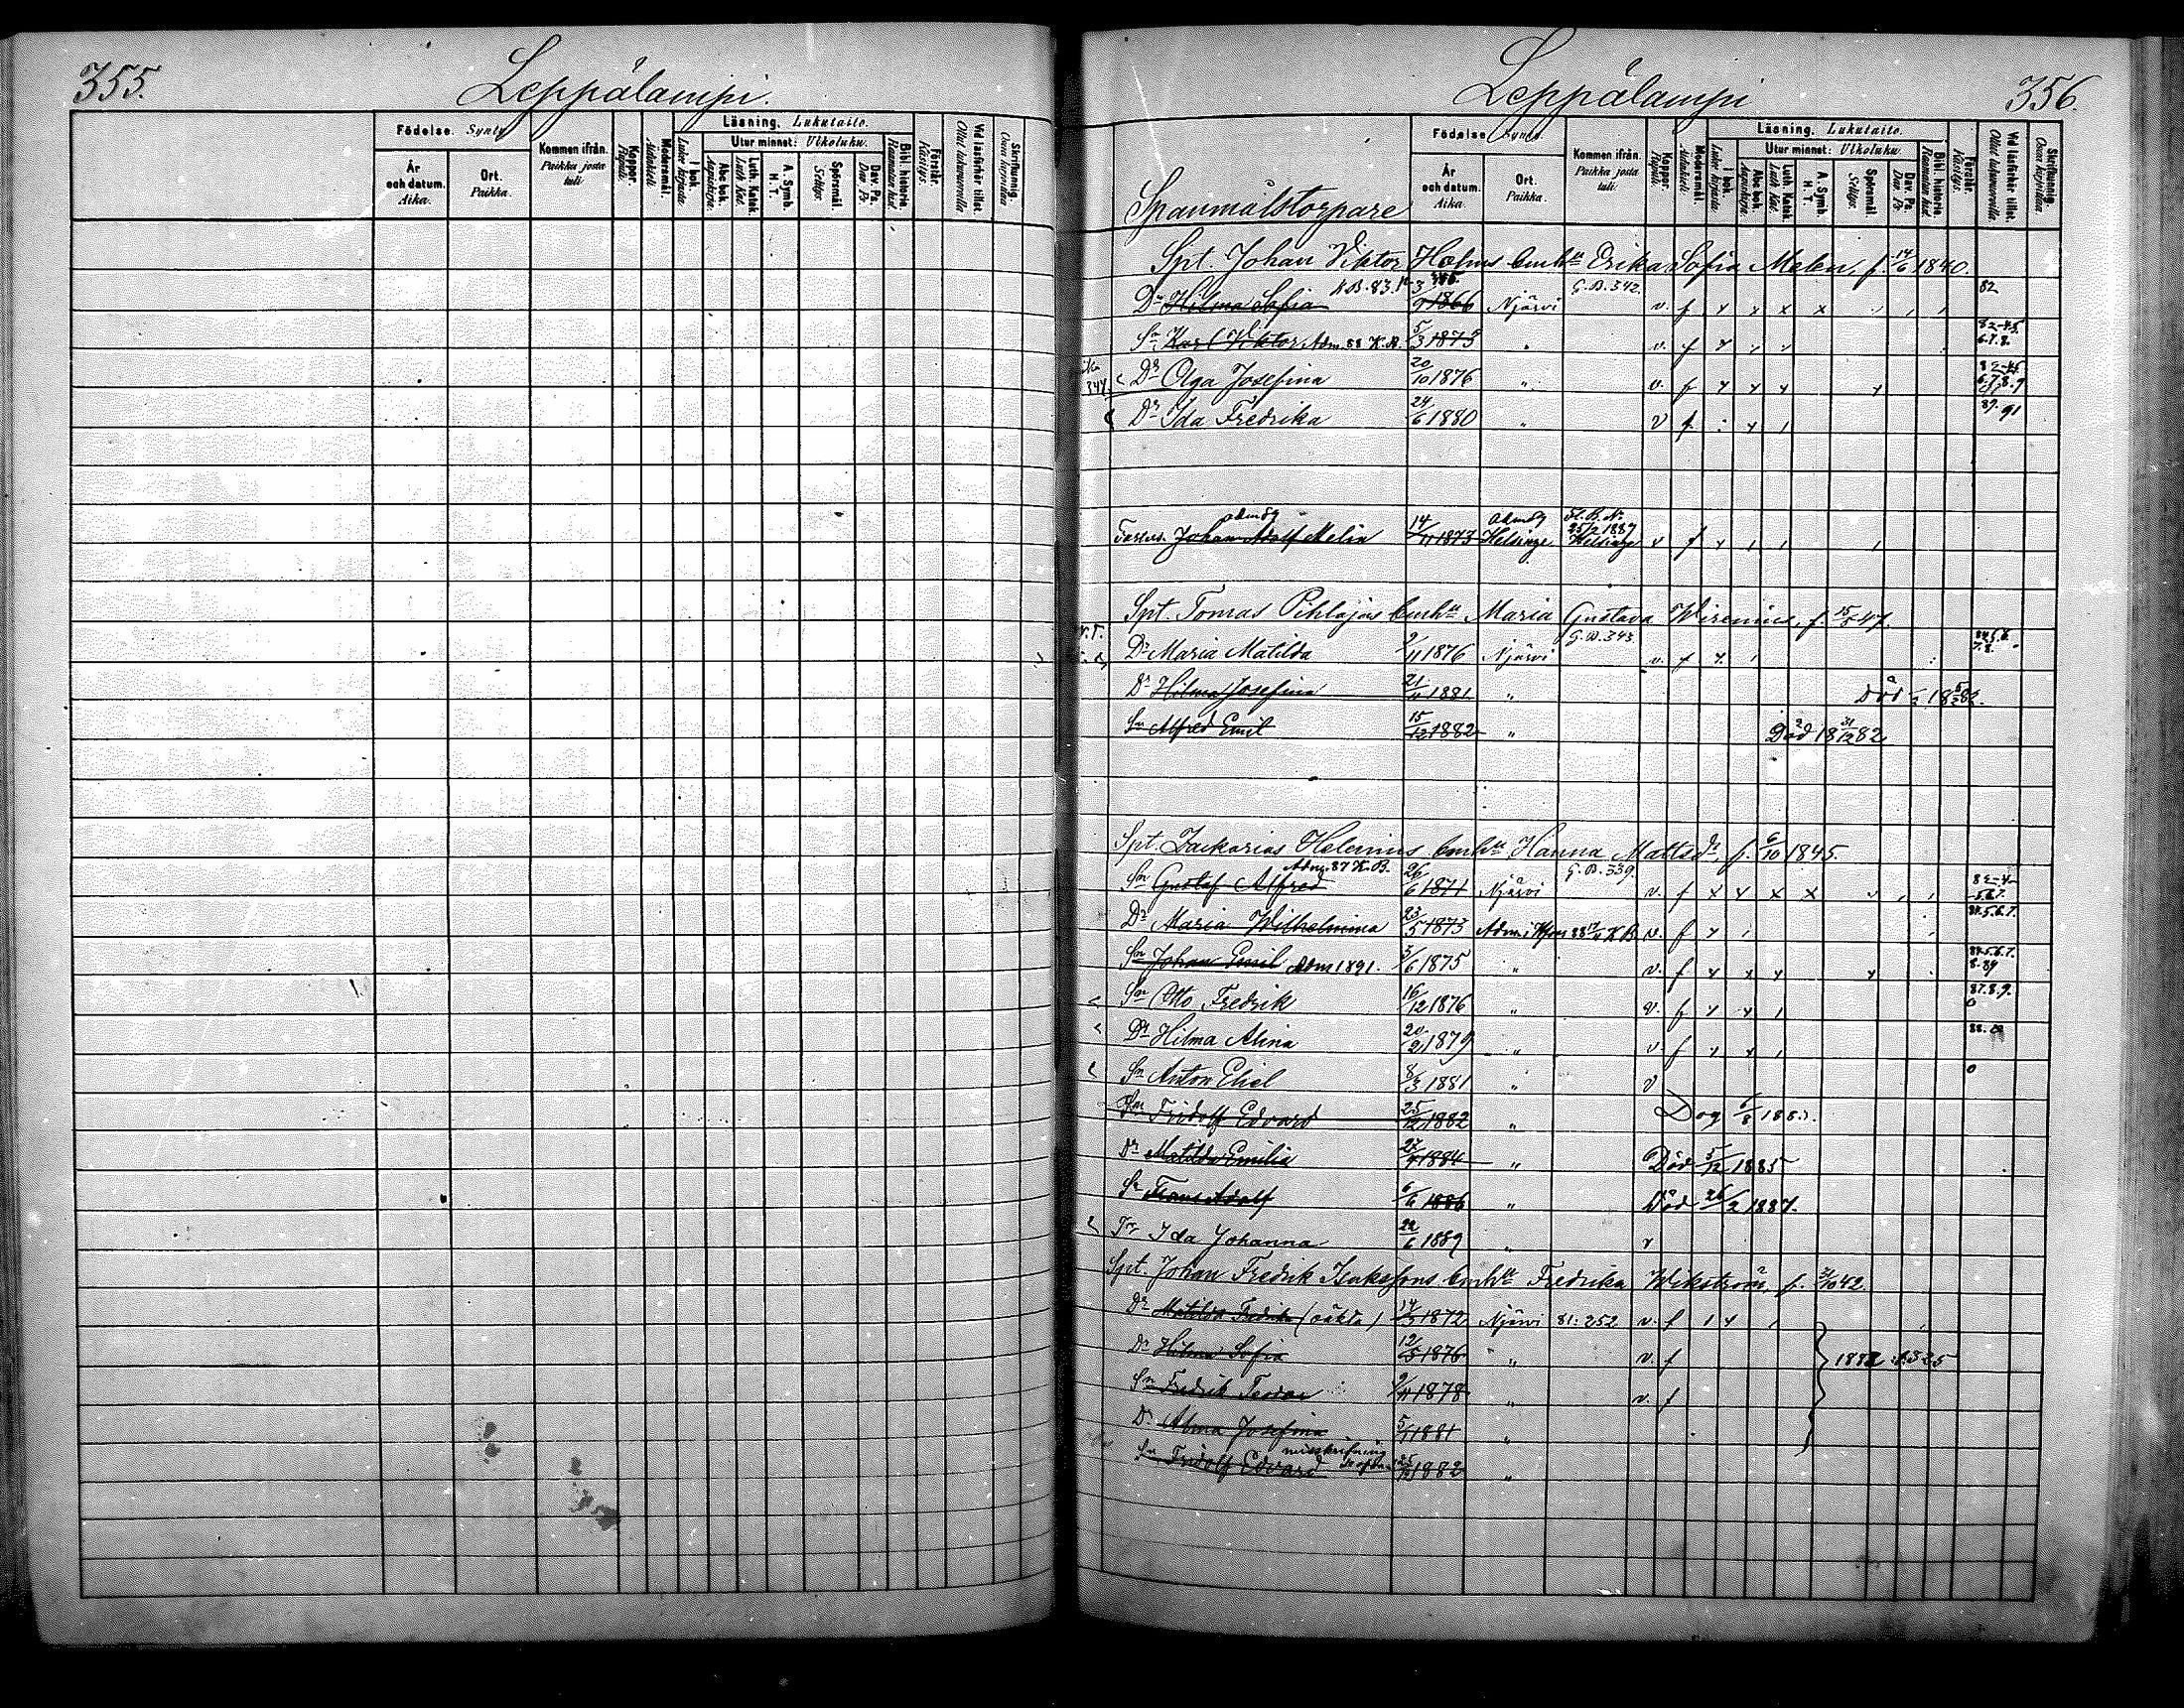 355.
Leppälampi.
Födelse. Synty
Kommen ifrån. Paikka josta tuli.
Koppor. Rupuli.
Modersmål. Äidinkieli.
Läsning. Lukutaito.
I bok. Lukee kirjasta.
Utur minnet: Ulkoluku.
Abc bok. Aapiskirja.
Luth. Katek. Luth. Kat.
A. Symb. H. T.
Spörsmål. Selitys.
Dav. Ps. Dav. Ps.
Bibl. historia. Raamatun hist.
Förstår. Käsitys.
Vid läsförhör tillst. Ollut lukuvuorolla
Skriftkunnig.
År och datum. Aika.
Ort. Paikka.
Leppälampi
356.
Spanmålstorpare
Födelse. Synty
År och datum. Aika.
Ort. Paikka.
Kommen ifrån. Paikka josta tuli.
Koppor. Rupuli.
Modersmål. Äidinkieli.
Läsning. Lukutaito.
I bok. Lukee kirjasta.
Utur minnet: Ulkoluku.
Abc bok. Aapiskirja.
Luth. Katek. Luth. Kat.
A. Symb. H. T.
Spörsmål. Selitys.
Dav. Ps. Dav. Ps.
Bibl. historia. Raamatun hist.
Förstår. Käsitys.
Vid läsförhör tillst.
Skriftkunnig.
Spt. Johan Viktor Holms Enka Erika Sofia Melen, f. 14/6 1840.
Dr Hilma Sofia K.B. 83. 3/9 1866 Njärvi G.B. 342. v. f 82
Sn Karl Viktor Adm. 88 K.B. 5/3 1873 " v. f 82-45. 6.7.8.
347. Dr Olga Josefina 20/10 1876 " v. f 82-45 6.7.8.9
Dr Ida Fredrika 24/6 1880 " v f 89. 91
Johan Adolf Melin 14/11 1873 Helsinge 25/2 1889 Helsinge v f
Spt. Tomas Pihlajas Enka Maria Gustava Wirenius, f. 15/5 47.
Dr Maria Matilda 9/11 1876 Njärvi G.B. 343. v. f
Dr Hilma Josefina 21/11 1881 " Död
Sn Alfred Emil 15/12 1882 " Död 18 31/12 82
Spt. Zackarias Helenius Enka Hanna Mattsdr, f. 6/10 1845.
Sn Gustaf Alfred Adm. 87 K.B. 26/6 1871 Njärvi G.B. 339. v. f 82-4- -5.6.7.
Dr Maria Wilhelmina 23/5 1873 Adm. i Hfors 88 K B v. f 84.5.6.7.
Sn Johan Emil Adm 1891. 3/6 1875 " v. f 84.5.6.7. 8.89
Sn Otto Fredrik 16/12 1876 " v. f 87.8.9. 0
Dr Hilma Alina 20/2 1879 " v. f
Sn Anton Eliel 8/3 1881 " v 0
Sn Fridolf Edvard 25/12 1882 " Dog 6/8
Dr Matilda Emilia 27/7 1884 " Död 5/12 1885
Sn Frans Adolf 6/6 1886 " Död 26/2 1887.
Dr Ida Johanna 22/6 1889 " v
Spt. Johan Fredrik Isakssons Enka Fredrika Wikström, f. 2/10 42.
Dr Matilda Fredrika (oäkta) 14/3 1872 Njärvi 81: 252 v. f
Dr Hilma Sofia 12/5 1876 " v. f 1882 f. 325
Sn Fredrik Teodor 9/11 1878 " v. f
Dr Alma Josefina 5/7 1881 "
Sn Fridolf Edvard misskrifning 25/12 1882 "